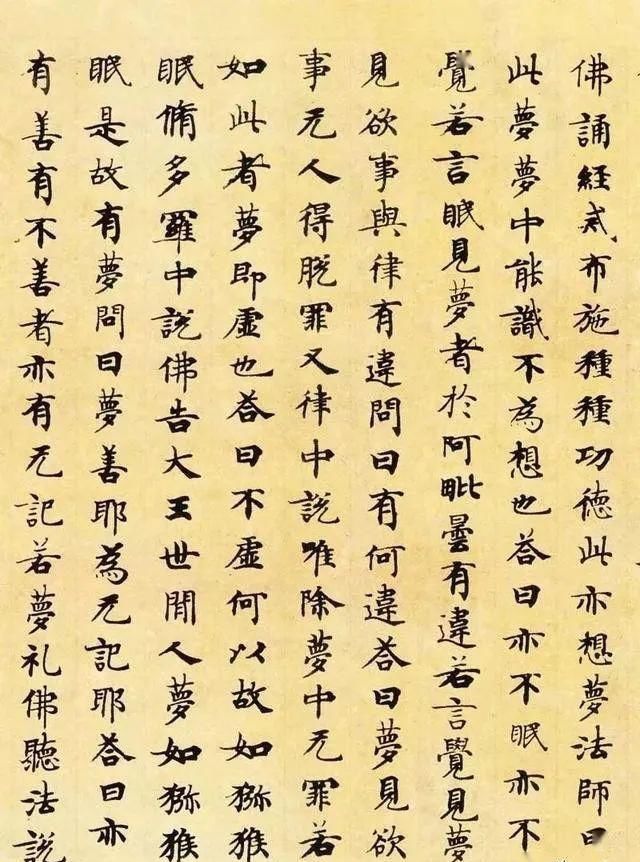 佛誦經或布施種種功德此亦想夢法師曰
此夢夢中能識不為想也答曰亦不眠亦不
覺若言眠見夢者於阿毗曇有違若言覺見夢
見欲事與律有違問曰有何違答曰夢見欲
事无人得脫罪又律中說唯除夢中无罪若
如此者夢即虛也答曰不虛何以故如獼猴
眠脩多羅中說佛告大王世間人夢如獼猴
眠是故有夢問曰夢善耶為无記耶答曰亦
有善有不善者亦有无記若夢礼佛聽法說